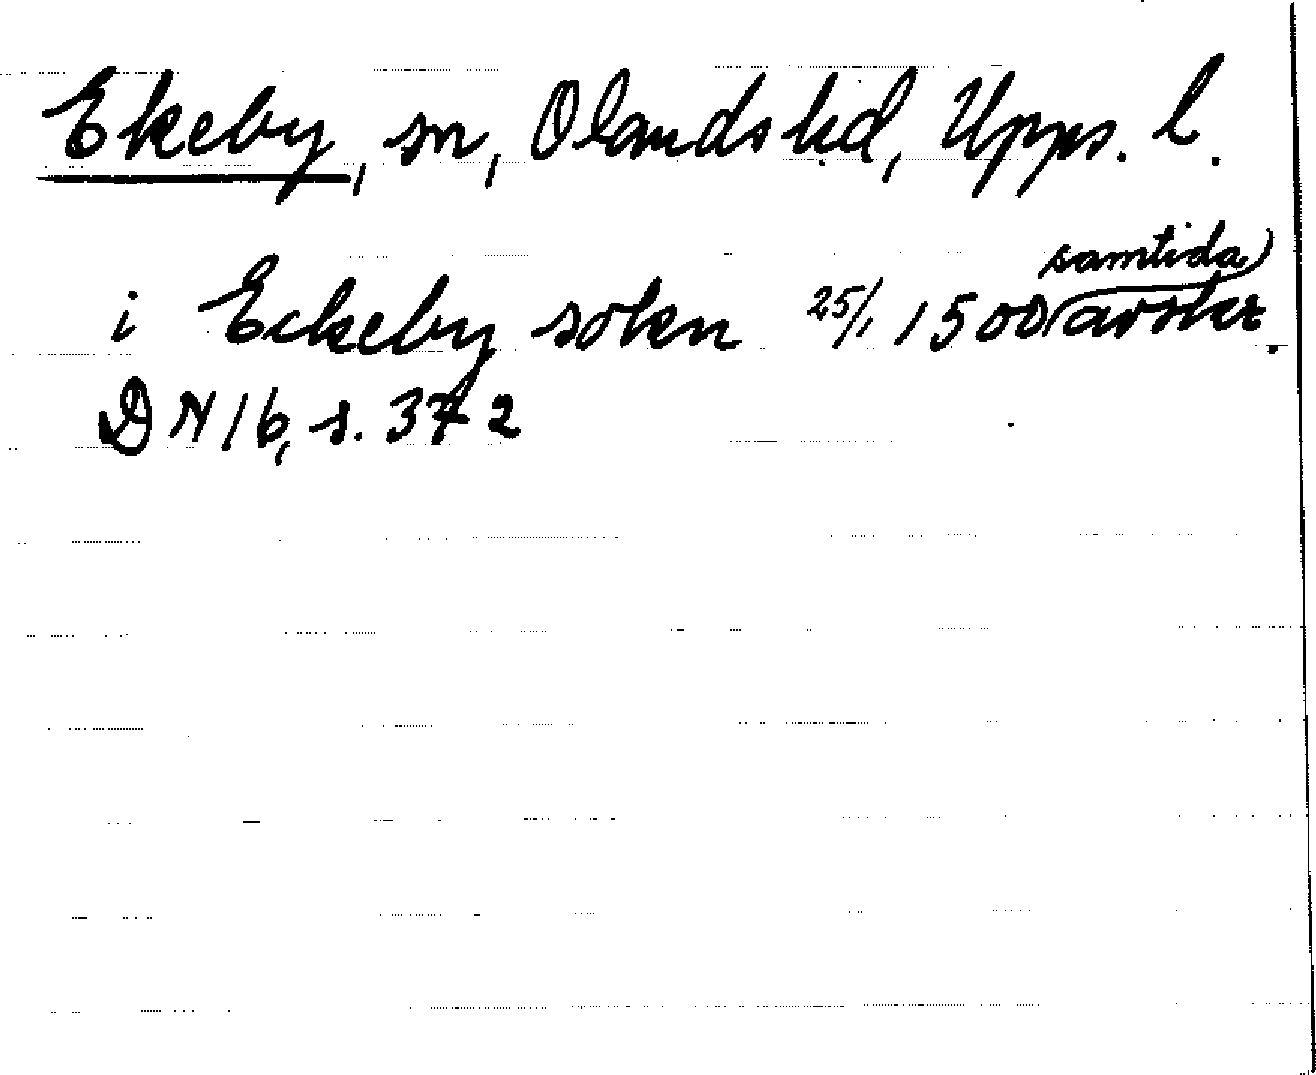 Ekeby, sn, Olands hd, Upps. l.
i Eckeby sokn 25/1 1500 samtida avskr.
DN 16, s. 372